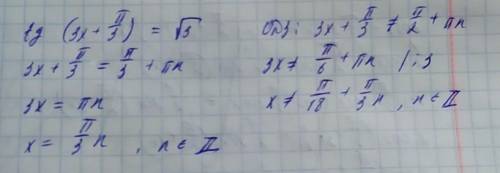 tg (3x + π/3) = √3
3x + π/3 = π/3 + πn
3x = πn
x = π/3 n , n ∈ Z
ОДЗ: 3x + π/3 ≠ π/2 + πn
3x ≠ π/6 + πn | :3
x ≠ π/18 + π/3 n , n ∈ Z